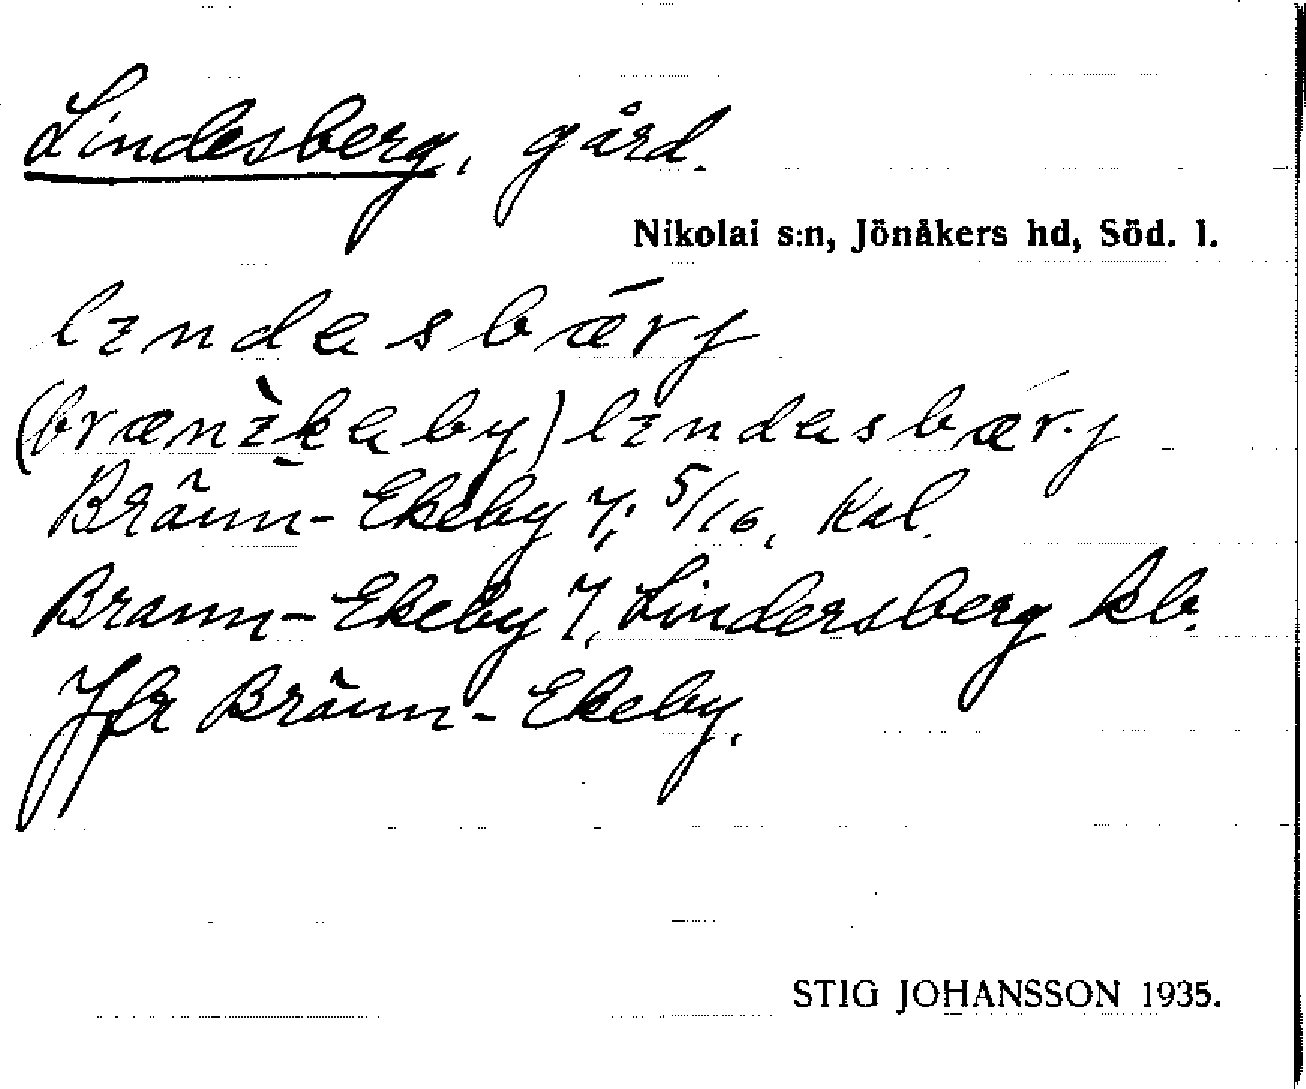 Lindesberg, gård.
Nikolai s:n, Jönåkers hd, Söd. l.
lɪndəsbærj
(brænɪkəby) lɪndəsbær.j
Bränn-Ekeby 7; 5/16, Kal.
Brann-Ekeby 7, Lindersberg kb.
Jfr Bränn-Ekeby.
STIG JOHANSSON 1935.